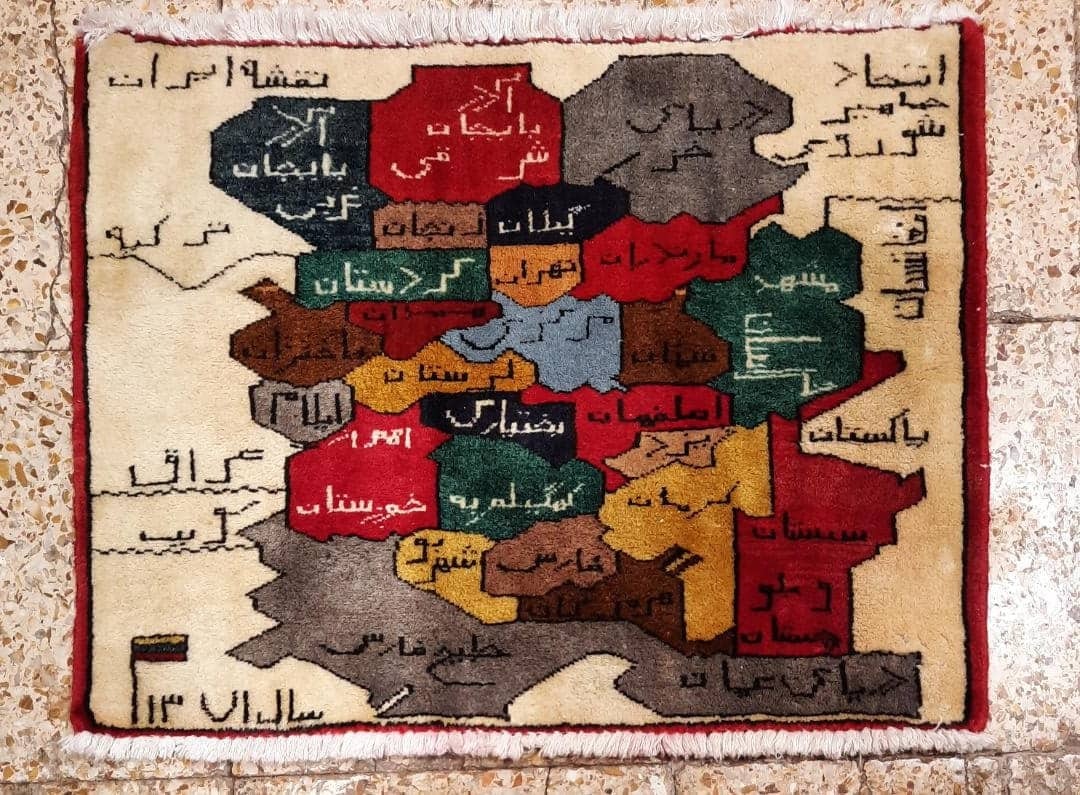 نقشه ایران
اتحاد
جماهیر
شوروی
آذ
بایجان
غربی
آذ
بایجان
شرقی
دریای
خزر
ترکیه
زنجان
گیلان
مازندران
افغانستان
کردستان
تهران
مشهد
همدان
مرکزی
باختران
سمنان
خراسان
لرستان
ایلام
بختیاری
اصفهان
یزد
پاکستان
اهواز
عراق
خوزستان
کهگیلویه
کرمان
کویت
سیستان
بو
شهر
فارس
هرمزگان
و بلو
چستان
خلیج فارس
دریای عمان
سال